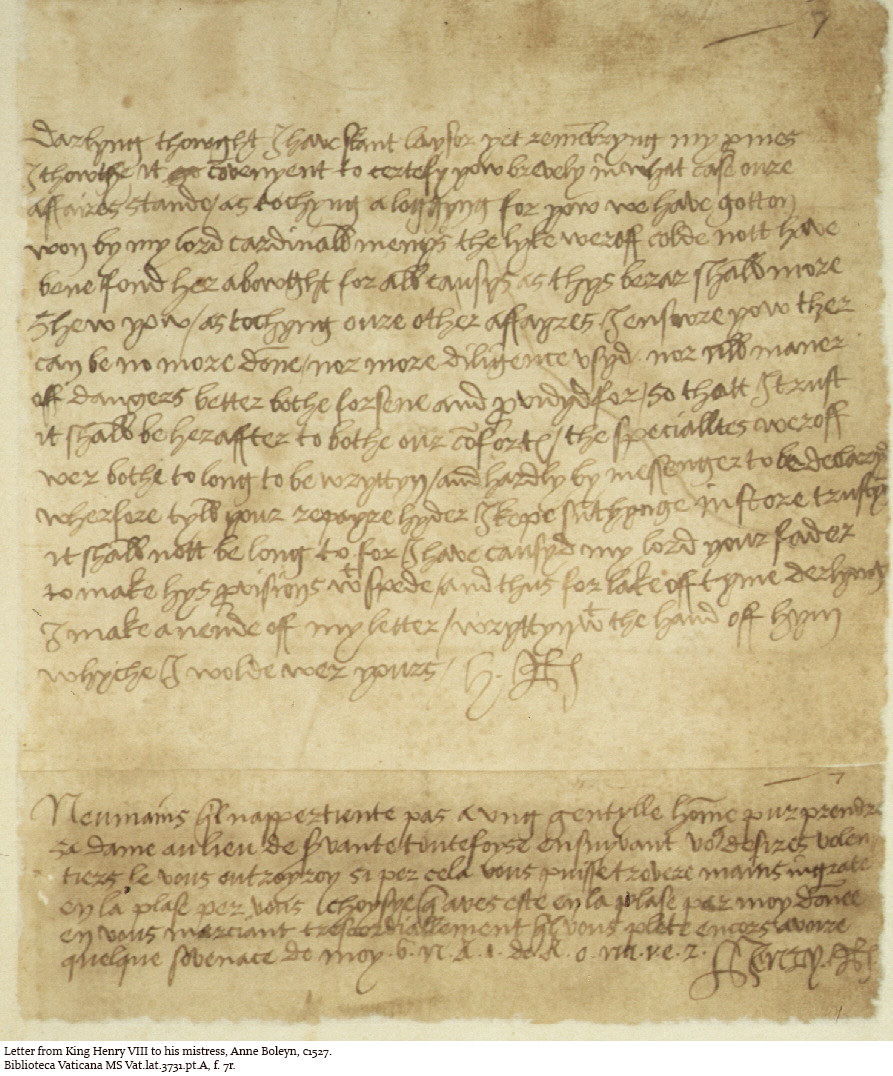 7
Darlyng thowght I have skant laysor yet remēbryng my pmes
I thowthe it cōvenyent to certefy yow brevely in what case oure
affaires stande / as tochyng a loggyng for yow we have gotton
won by my lord cardinall menys the lyke weroff colde nott have
bene fond her abowght for all causys as thys berar shall more
shew yow / as tochyng oure other affayres I enswre yow ther
can be no more done / nor more diligence vsyd nor all maner
off dangers better bothe forsene and pvidyd for / so thatt I trust
it shall be heraffter to bothe our cōfort / the specialltes weroff
wer bothe to long to be wryttyn / and hardly by messenger to be declaryd
wherfore tyll your repayre hyder I kepe sūthynge in store trustyng
it shall nott be long to for I have causyd my lord your fader
to make hys pvisions wt spede / and thus for lake off tyme derlyng
I make a nende off my letter / wryttyn wt the hand off hym
whyche I wolde wer yours / H. R
7
Neumains ql nappertiente pas a vng gentylle hōme pur prendre
sa dame au lieu de svante toutefoyse ensuivant vo desires volen
tiers le vous outroyroy si per cela vous puisse trovere mains ingrate
en la plase per vous choysye q aves este en la plase par moy donēe
en vous merciant trescordiallement ql vous plete encors avoire
quelque sovenace de moy . 6. n. A. 1. de A. o. na. ve. z. Henry R
Letter from King Henry VIII to his mistress, Anne Boleyn, c1527.
Biblioteca Vaticana MS Vat.lat.3731.pt.A, f. 7r.